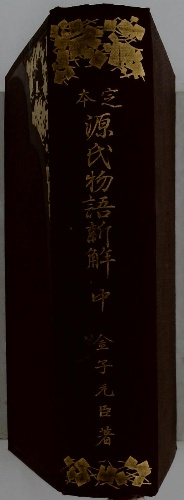 定本
源氏物語新解 中
金子元臣著